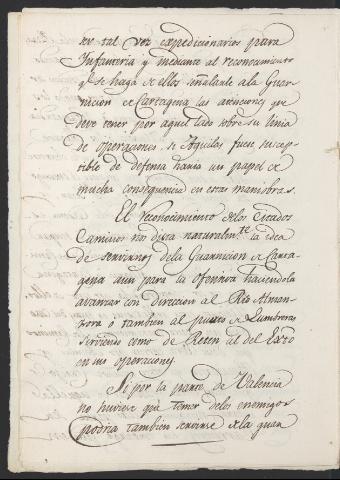 ser tal vez expedicionarios para
Infanteria y mediante al reconocimiento
qe. se haga de ellos señalarle a la Guar-
nicion de Cartagena las atenciones que
deve tener por aquel lado sobre su linia
de operaciones. Si Aguilas fuese suscep-
tible de defensa haria un papel de
mucha consequencia en estas maniobras.
El reconocimiento de los citados
Caminos nos dicta naturalmte. la idea
de servirnos de la Guarnicion de Carta-
gena aun para la ofensiva haciendola
avanzar con direccion al Rio Alman-
zora o tambien al punto de Lumbreras
sirviendo como de Reten al del Exto
en sus operaciones.
Si por la parte de Valencia
no huviese que temer de los enemigos
podria tambien servirse de la guar